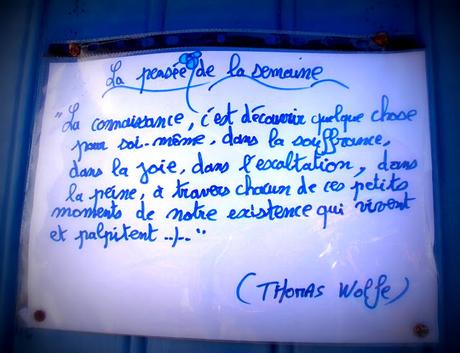 La pensée de la semaine
"La connaissance, c'est découvrir quelque chose
pour soi-même, dans la souffrance,
dans la joie, dans l'exaltation, dans
la peine, à travers chacun de ces petits
moments de notre existence qui vivent
et palpitent ../.. "
(THOMAS Wolfe)